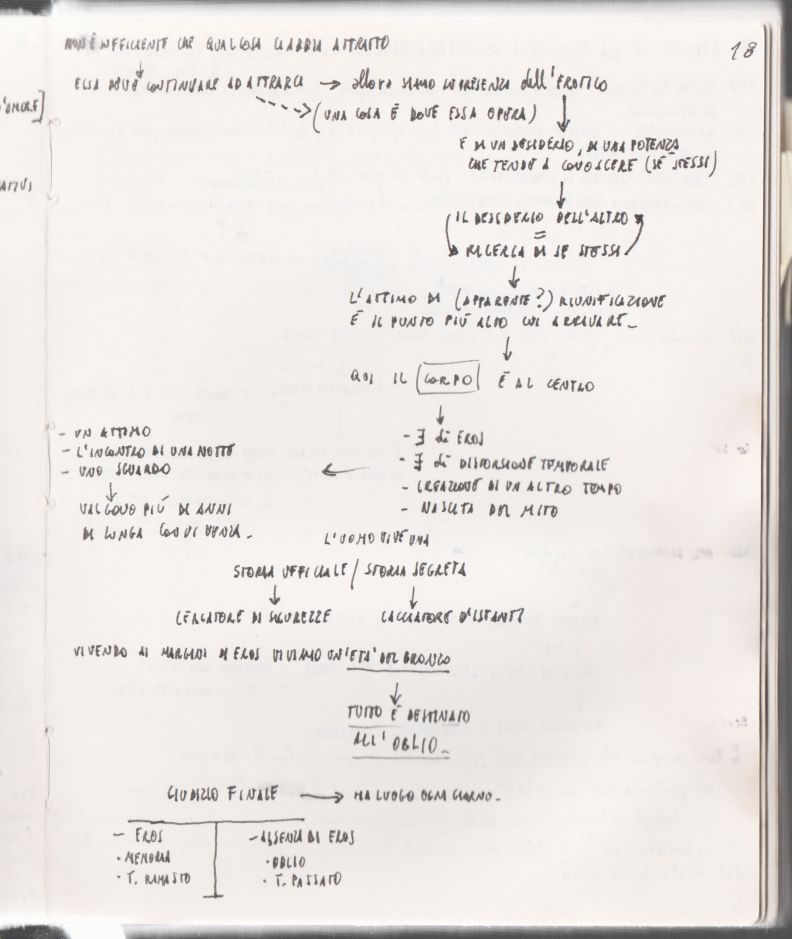 18
NON È SUFFICIENTE CHE QUALCOSA CI ABBIA ATTRATTO
ESSA DEVE CONTINUARE AD ATTRARCI → allora SIAMO IN PRESENZA dell'EROTICO
(UNA COSA È DOVE ESSA OPERA)
E DI UN DESIDERIO, DI UNA POTENZA
CHE TENDE A CONOSCERE (SE STESSI)
IL DESIDERIO DELL'ALTRO
=
RICERCA DI SE STESSI
L'ATTIMO DI (APPARENTE?) RIUNIFICAZIONE
È IL PUNTO PIÙ ALTO CUI ARRIVARE_
QUI IL CORPO È AL CENTRO
- ∃ di EROS
- ∃ di DISTORSIONE TEMPORALE
- CREAZIONE DI UN ALTRO TEMPO
- NASCITA DEL MITO
- UN ATTIMO
- L'INCONTRO DI UNA NOTTE
- UNO SGUARDO
VALGONO PIÙ DI ANNI
DI LUNGA CONVIVENZA_
L'UOMO VIVE UNA
STORIA UFFICIALE / STORIA SEGRETA
CERCATORE DI SICUREZZE CACCIATORE D'ISTANTI
VIVENDO AI MARGINI DI EROS VIVIAMO UN'ETA' DEL BRONZO
TUTTO È DESTINATO
ALL'OBLIO_
GIUDIZIO FINALE → HA LUOGO OGNI GIORNO_
- EROS - ASSENZA DI EROS
• MEMORIA • OBLIO
• T. RIMASTO • T. PASSATO